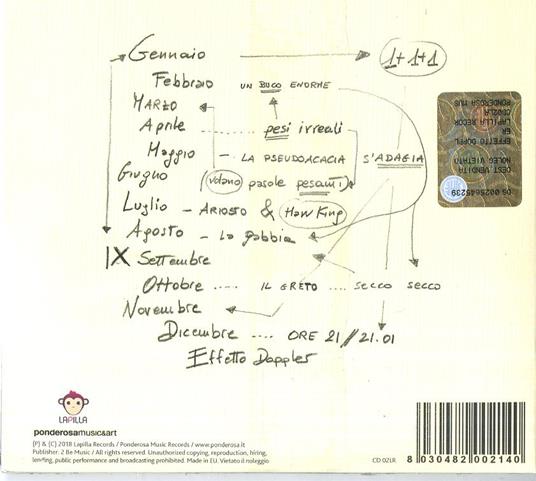 Gennaio 1+1+1
Febbraio UN BUCO ENORME
MARZO
Aprile ........ pesi irreali
Maggio — LA PSEUDOACACIA S'ADAGIA
Giugno (volano parole pesanti)
Luglio — ARIOSTO & HAWKING
Agosto — la gabbia
IX Settembre
Ottobre ..... IL GRETO .... SECCO SECCO
Novembre
Dicembre .... ORE 21 // 21.01
Effetto Doppler
DEST. VENDITA
NOLEG VIETATO
EFFETTO DOPPL
ER
LAPILLA RECOR
CD02LR
PONDEROSA MUS
OS 0025645239
LAPILLA
ponderosamusic&art
(P) & (C) 2018 Lapilla Records / Ponderosa Music Records / www.ponderosa.it
Publisher: 2 Be Music / All rights reserved. Unauthorized copying, reproduction, hiring,
lending, public performance and broadcasting prohibited. Made in EU. Vietato il noleggio
CD 02LR
8 030482 002140